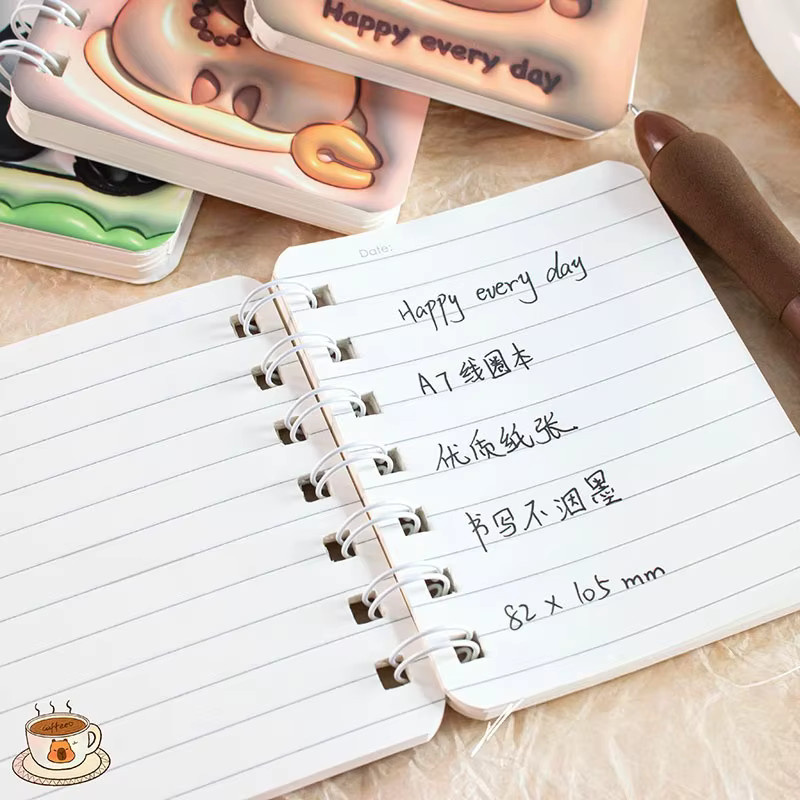 Happy every day
Date:
Happy every day
A7 线圈本
优质纸张
书写不洇墨
82 x 105 mm